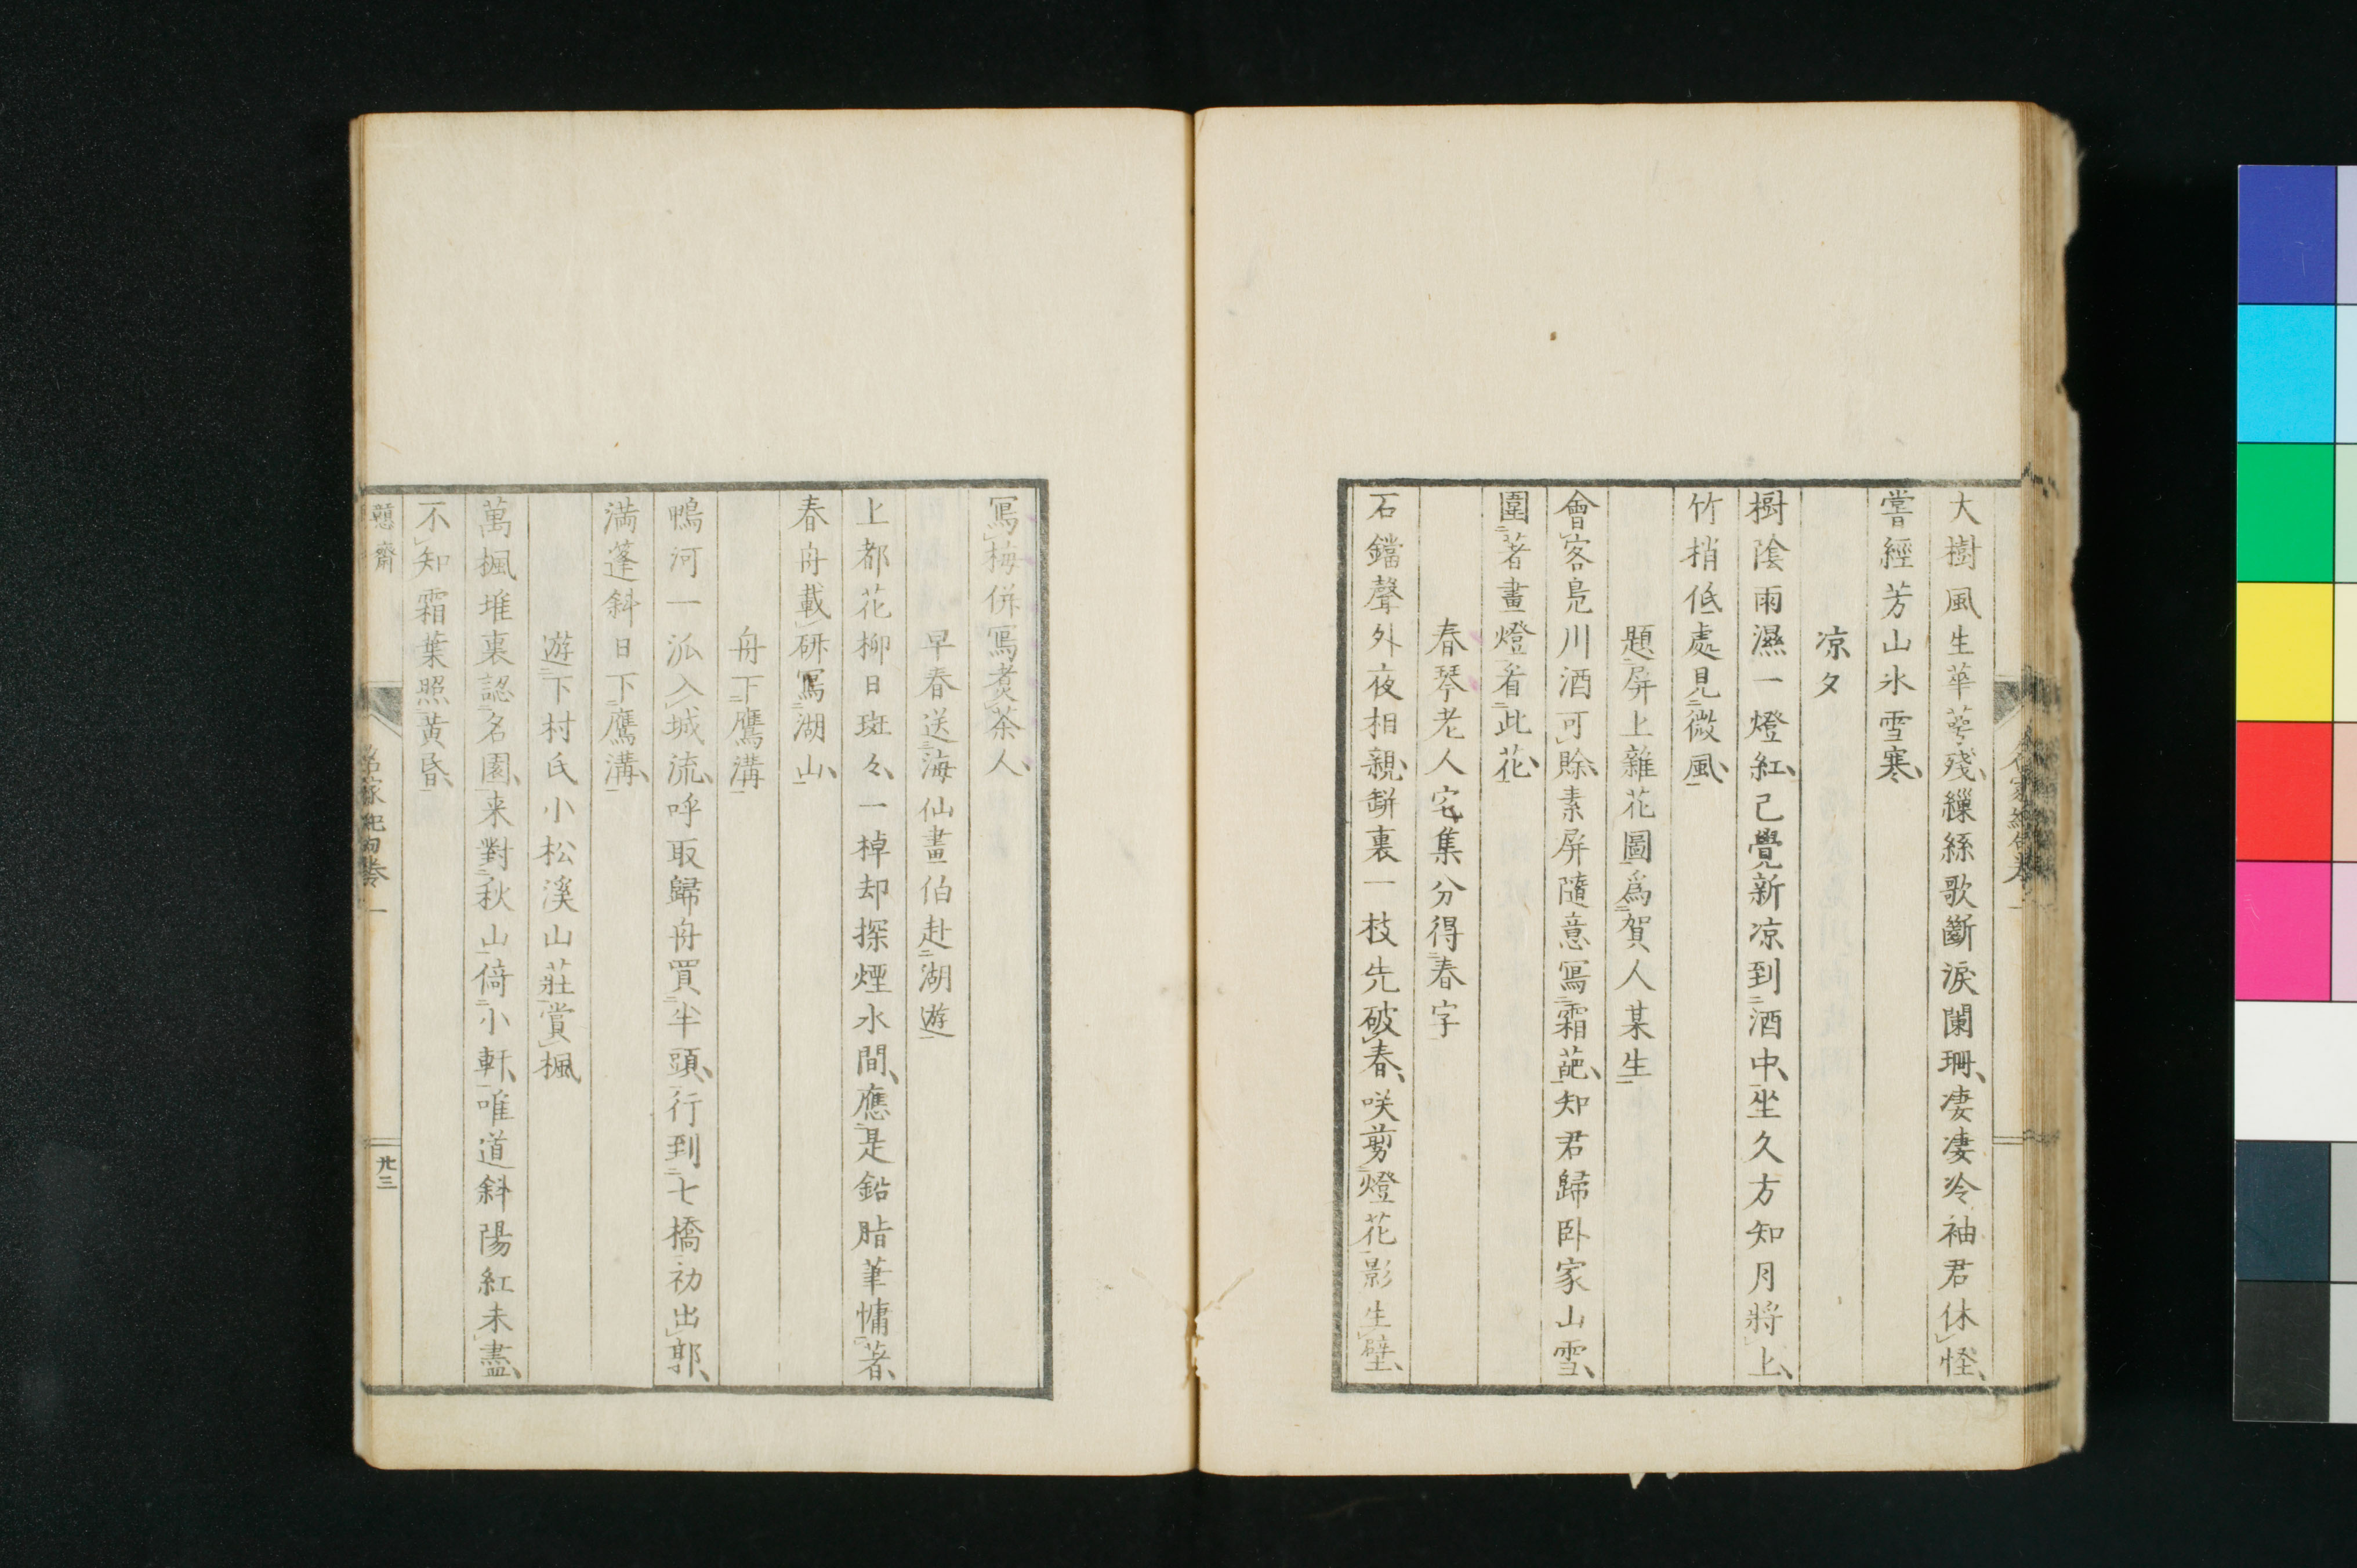 大樹風生華萼殘繅絲歌斷淚闌珊凄凄冷袖君休怪
嘗經芳山氷雪寒
凉夕
樹陰雨濕一燈紅已覺新凉到酒中坐久方知月將上
竹梢低處見微風
題屏上雜花圖爲賀人某生
會客是川酒可賒素屏隨意寫霜葩知君歸臥家山雪
圍著畫燈看此花
春琴老人宅集分得春字
石鐺聲外夜相親缾裏一枝先破春咲剪燈花影生壁
寫梅併寫煮茶人
早春送海仙畫伯赴湖遊
上都花柳日斑々一棹却探煙水間應是鉛脂筆慵著
春舟載研寫湖山
舟下鷹溝
鴨河一派入城流呼取歸舟買半頭行到七橋初出郭
満篷斜日下鷹溝
遊下村氏小松溪山莊賞楓
萬楓堆裏認名園来對秋山倚小軒唯道斜陽紅未盡
不知霜葉照黄昏
齋
名家絶句卷一
廿三